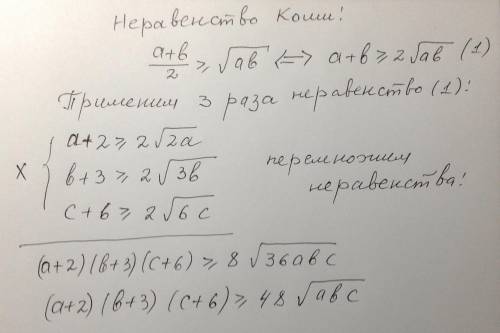 Неравенство Коши!
(a+b)/2 ≥ √ab ⟺ a+b ≥ 2√ab (1)
Применим 3 раза неравенство (1):
x { a+2 ≥ 2√2a
b+3 ≥ 2√3b
c+6 ≥ 2√6c
перемножим
неравенства!
(a+2)(b+3)(c+6) ≥ 8√36abc
(a+2)(b+3)(c+6) ≥ 48√abc